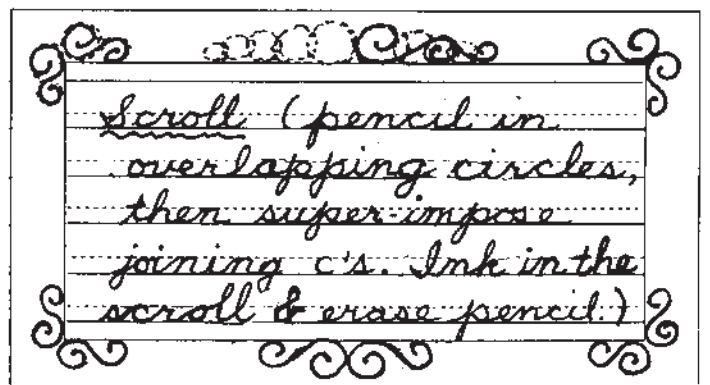 Scroll (pencil in
overlapping circles,
then super-impose
joining c's. Ink in the
scroll & erase pencil.)